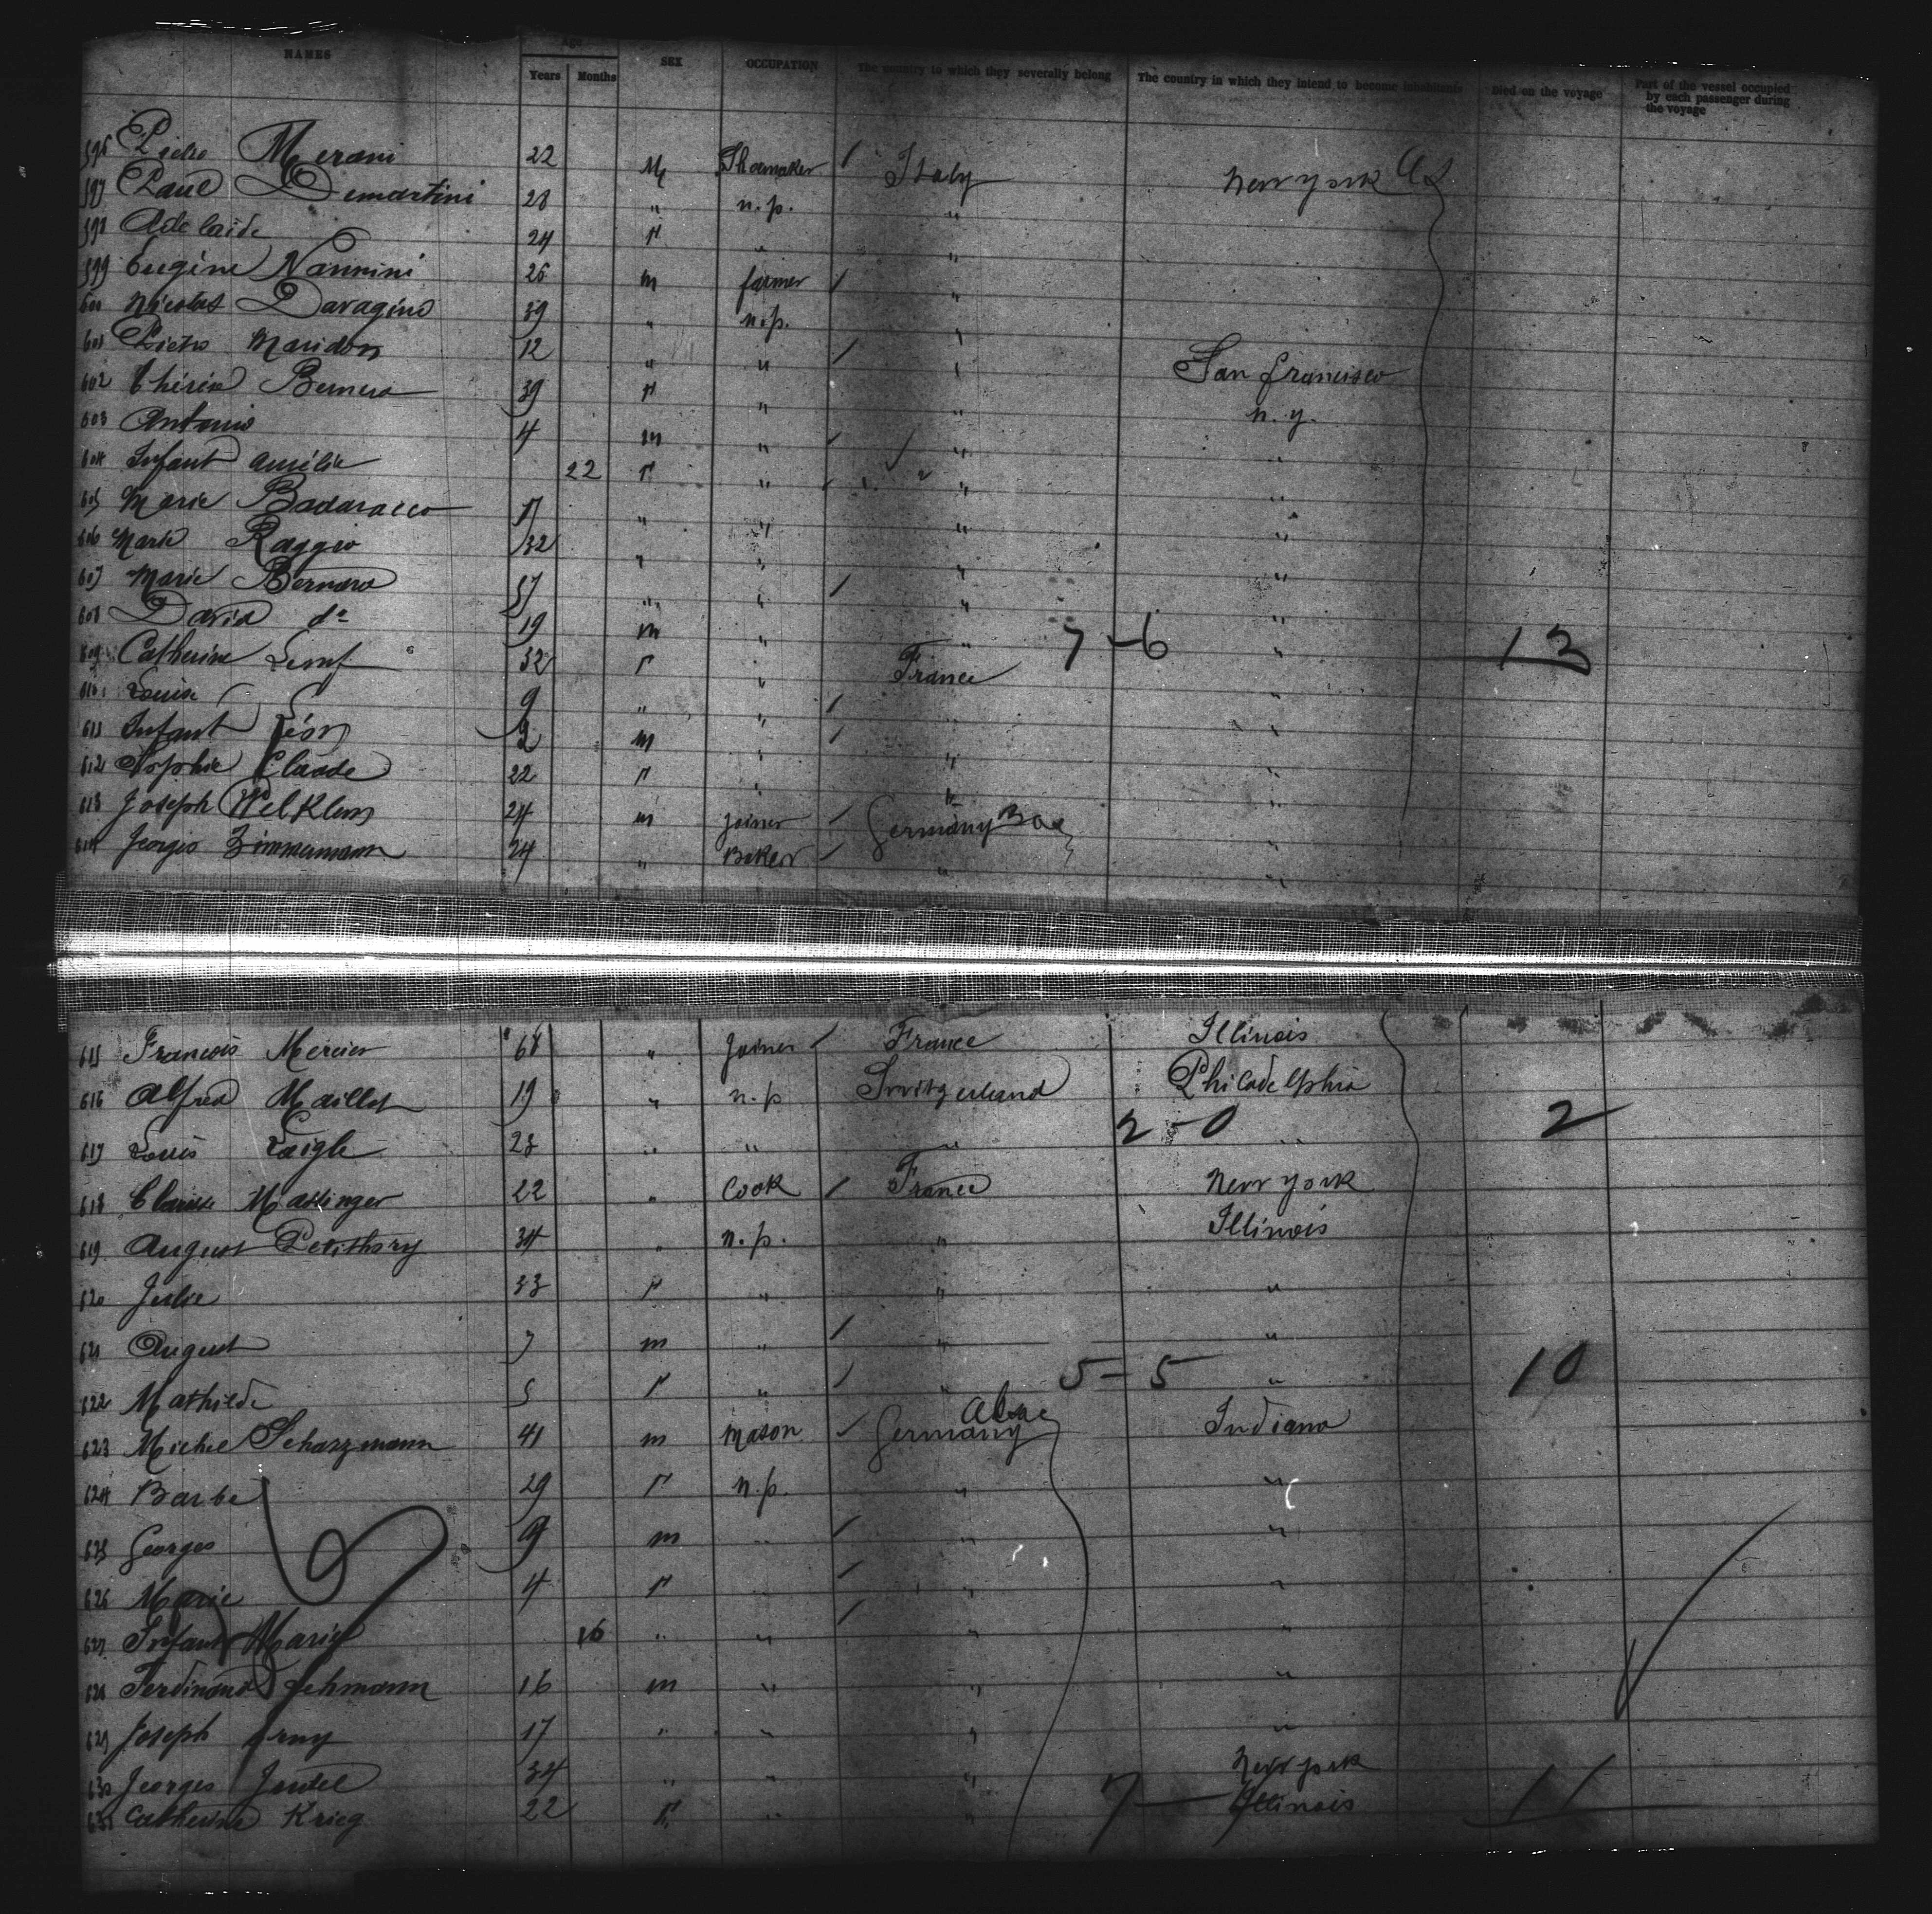 NAMES Age Years Months SEX OCCUPATION The country to which they severally belong The country in which they intend to become inhabitants Died on the voyage Part of the vessel occupied by each passenger during the voyage
596 Pietro Merani 22 M Shoemaker / Italy New york
597 Paul Demartini 28 " n.p. "
598 Adelaide 24 f " "
599 Eugène Nannini 26 m farmer / "
600 Nicolas Daragino 39 " n.p. "
601 Pietro Maridon 12 " " / " San francisco
602 Thérèse Bernero 39 f " " n.y.
603 Antonio 4 m " / " "
604 Infant Amélie 22 f " / " "
605 Marie Badaracco 17 " " " "
606 Marie Raggio 32 " " " "
607 Marie Bernaro 57 " " / " "
608 David do 19 m " " 7-6 " 13
609 Catherine 32 f " France "
610 Louise 9 " " / "
611 Infant Léon 2 m " / "
612 Sophie Claude 22 f " " "
613 Joseph Welklen 24 m joiner / Germany "
614 Georges Zimmermann 24 " Baker / " "
615 Francois Mercier 68 " Joiner / France Illinois
616 Alfred Maillet 19 " n.p Switzerland Philadelphia
617 Louis Laigle 23 " " " 2-0 " 2
618 22 " Cook / France New york
619 August Petithory 34 " n.p. " Illinois
620 Julie 33 f " " "
621 August 7 m " / " "
622 Mathilde 5 f " / " 5-5 " 10
623 Michel Scharzmann 41 m Mason / Germany Indiana
624 Barbe 29 f n.p. " "
625 Georges 9 m " / " "
626 Marie 4 f " / " "
627 Infant Marie 16 " " / " "
628 Ferdinand Lehmann 16 m " " "
629 Joseph 17 " " " "
630 Georges 34 " " " New york
631 Catherine Krieg 22 f " " 7- Illinois 11